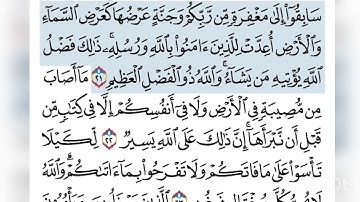 سَابِقُوٓا۟ إِلَىٰ مَغْفِرَةٍ مِّن رَّبِّكُمْ وَجَنَّةٍ عَرْضُهَا كَعَرْضِ ٱلسَّمَآءِ
وَٱلْأَرْضِ أُعِدَّتْ لِلَّذِينَ ءَامَنُوا۟ بِٱللَّهِ وَرُسُلِهِۦ ۚ ذَٰلِكَ فَضْلُ
ٱللَّهِ يُؤْتِيهِ مَن يَشَآءُ ۚ وَٱللَّهُ ذُو ٱلْفَضْلِ ٱلْعَظِيمِ ٢١ مَآ أَصَابَ
مِن مُّصِيبَةٍ فِى ٱلْأَرْضِ وَلَا فِىٓ أَنفُسِكُمْ إِلَّا فِى كِتَٰبٍ مِّن
قَبْلِ أَن نَّبْرَأَهَآ ۚ إِنَّ ذَٰلِكَ عَلَى ٱللَّهِ يَسِيرٌ ٢٢ لِّكَيْلَا
تَأْسَوْا۟ عَلَىٰ مَا فَاتَكُمْ وَلَا تَفْرَحُوا۟ بِمَآ ءَاتَىٰكُمْ ۗ وَٱللَّهُ